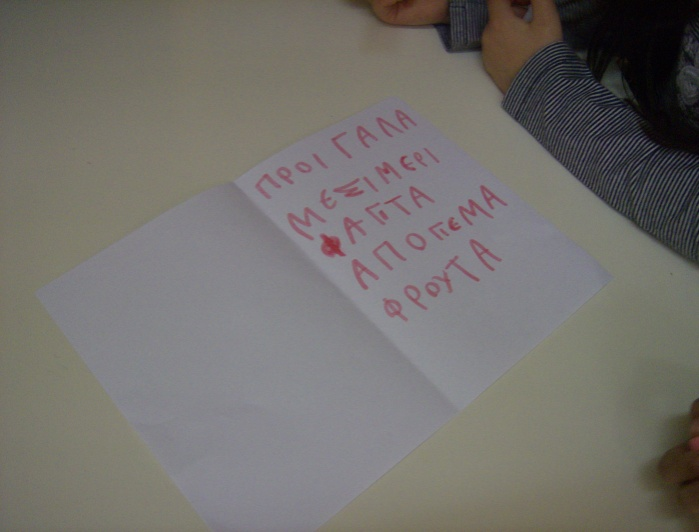 ΠΡΟΙ ΓΑΛΑ
ΜΕΞΙΜΕΡΙ
ΦΑΓΙΤΑ
ΑΠΟΓΙΕΜΑ
ΦΡΟΥΤΑ